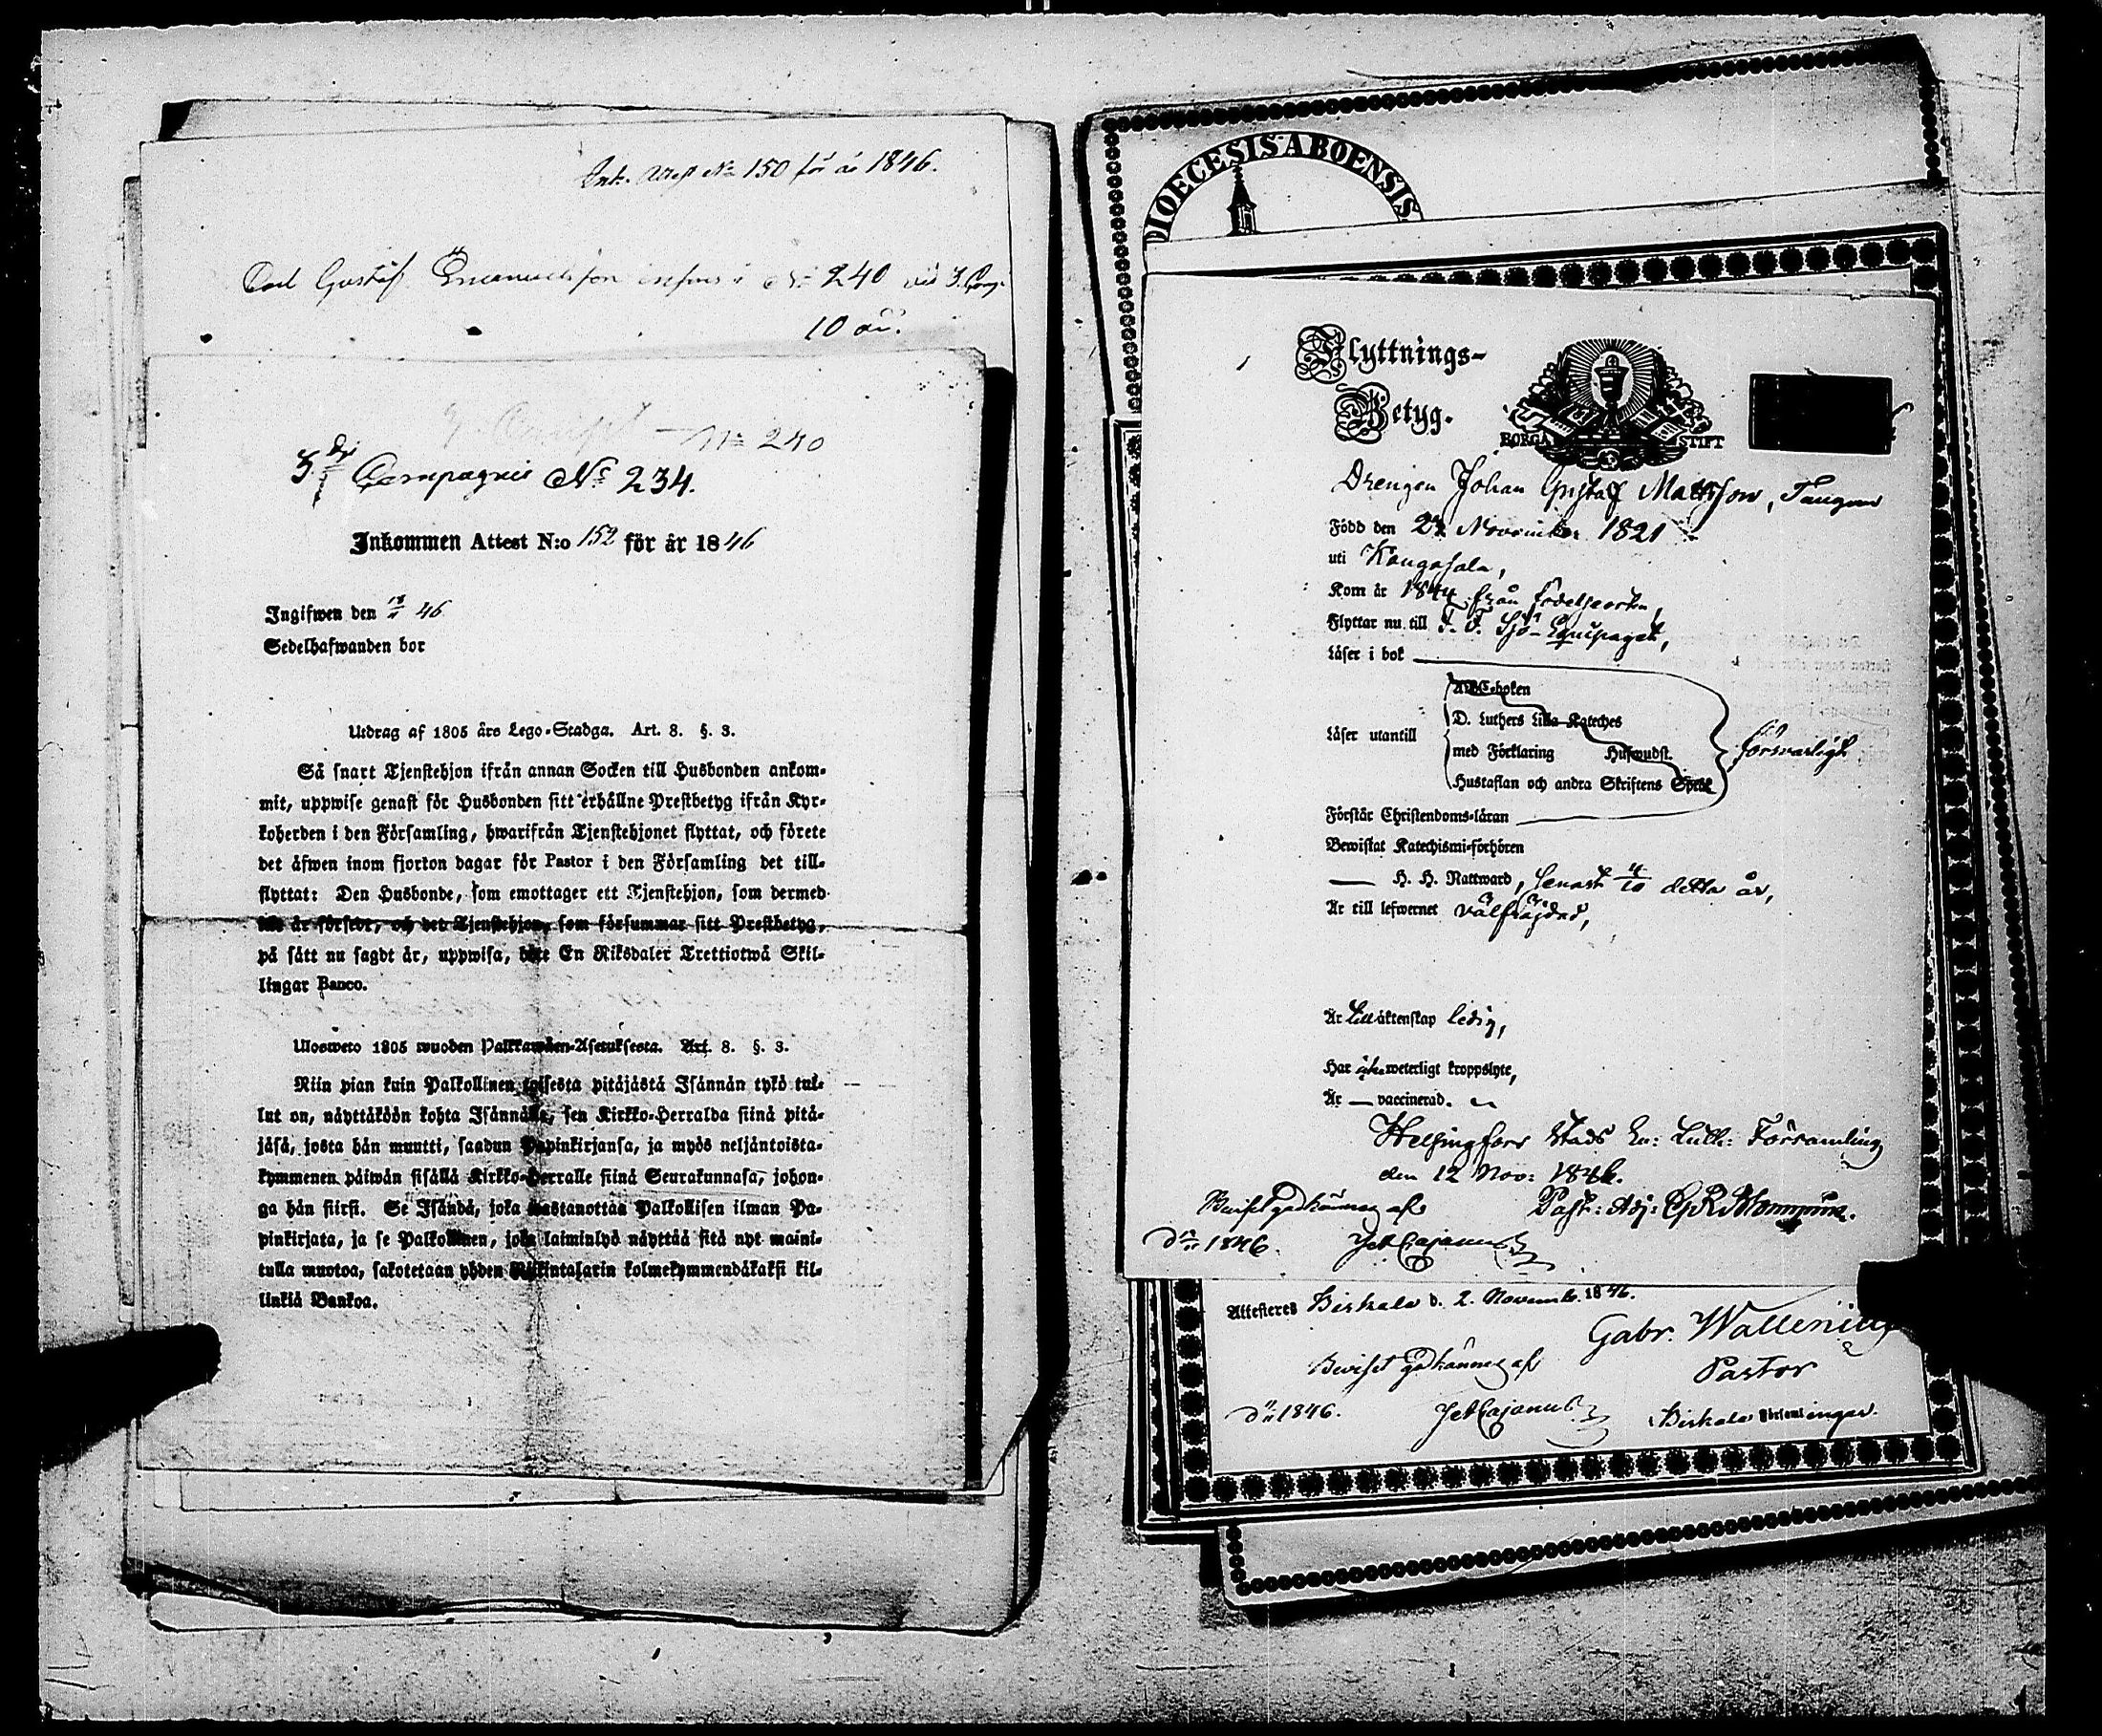 Ink. Attest No 150 för år 1846.
Carl Gustaf Emanuelsson No 240 vid 3. Comp.
10 år.
No 240
3dje Compagnie No 234.
Inkommen Attest N:o 152 för år 1846
Ingifwen den 46
Sedelhafwanden bor
Utdrag af 1805 års Lego-Stadga. Art. 8. §. 3.
Så snart Tjenstehjon ifrån annan Socken till Husbonden ankom-
mit, uppwise genast för Husbonden sitt erhållne Prestbetyg ifrån Kyr-
koherden i den Församling, hwarifrån Tjenstehjonet flyttat, och förete
det äfwen inom fjorton dagar för Pastor i den Församling det till-
flyttat: Den Husbonde, som emottager ett Tjenstehjon, som dermed
är försedt, och det Tjenstehjon, som försummar sitt Prestbetyg,
på sätt nu sagdt är, uppwisa, böte En Riksdaler Trettiotwå Skil-
lingar Banco.
Ulosweto 1805 wuoden Palkkawäen-Asetuksesta. Art. 8. §. 3.
Niin pian kuin Palkollinen toisesta pitäjästä Isännän tykö tul-
lut on, näyttäköön kohta Isännälle, sen Kirkko-Herralda siinä pitä-
jäsä, josta hän muutti, saadun Papinkirjansa, ja myös neljäntoista-
kymmenen päiwän sisällä Kirkko-Herralle siinä Seurakunnasa, johon-
ga hän siirsi. Se Isändä, joka wastanottaa Palkollisen ilman Pa-
pinkirjata, ja se Palkollinen, joka laiminlyö näyttää sitä nyt maini-
tulla muotoa, sakotetaan yhden Riikintalarin kolmekymmendäkaksi kil-
linkiä Bankoa.
DIOECESIS ABOENSIS
Flyttnings-
Betyg.
BORGÅ STIFT
Drengen Johan Gustaf Mattsson, Tangen
Född den 24 November 1821
uti Kangasala,
Kom år 1844 från födelseorten,
Flyttar nu till F. F. Sjö-Equipaget,
Läser i bok
Läser utantill
ABC-boken
D. Luthers Lilla Kateches
med Förklaring Hufwudst.
Hustaflan och andra Skriftens Språk
försvarligt
Förstår Christendoms-läran
Bewistat Katechismi-förhören
H. H. Nattward, senast 4/10 detta år,
Är till lefwernet välfräjdad,
Är till äktenskap ledig,
Har icke weterligt kroppslyte,
Är vaccinerad.
Helsingfors Stads Ev: Luth: Församling
den 12 Nov: 1846.
Past: Adj:
Beviset godkännes af
1846. Cajanus
Attesteras Birkala d. 2. Novemb. 1846.
Gabr. Wallenius
Beviset godkännes af Pastor
1846. Cajanus Birkala Församlingar.